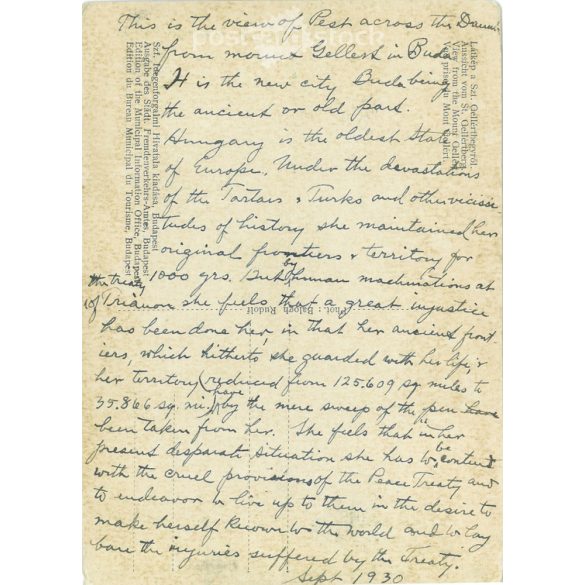 This is the view of Pest across the Danube
from mount Gellert in Buda
It is the new city Buda being
the ancient or old part.
Hungary is the oldest State
of Europe. Under the devastations
of the Tartars & Turks and other vicissi-
tudes of history she maintained her
original frontiers & territory for
1000 yrs. But by human machinations at
the treaty
of Trianon she feels that a great injustice
has been done her, in that her ancient front
iers, which hitherto she guarded with her life, &
her territory reduced from 125.609 sq miles to
35.866 sq. mi. have by the mere sweep of the pen have
been taken from her. She feels that in her
present desparate situation she has to be content
with the cruel provisions of the Peace Treaty and
to endeavor to live up to them in the desire to
make herself known to the world and to lay
bare the injuries suffered by the Treaty.
Sept 1930
Látkép a Szt. Gellérthegyről
Aussicht vom St. Gellértberg
View from the Mount Gellért
Vue prise du Mont Gellért.
Szf. Idegenforgalmi Hivatala kiadása, Budapest
Ausgabe des Städt. Fremdenverkehrs-Amtes, Budapest
Edition of the Municipal Information Office, Budapest
Edition du Bureau Municipal du Tourisme, Budapest
Phot.: Balogh Rudolf